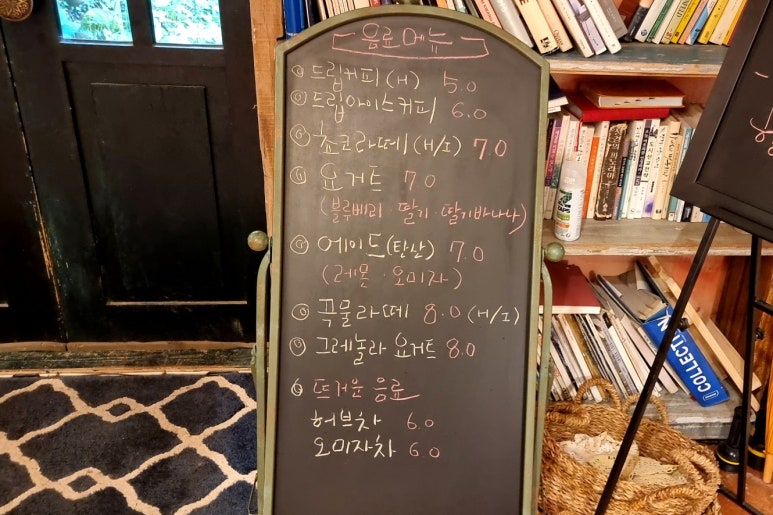 음료메뉴
드립커피(H) 5.0
드립아이스커피 6.0
쵸코라떼(H/I) 7.0
요거트 7.0
(블루베리·딸기·딸기바나나)
에이드(탄산) 7.0
(레몬·오미자)
곡물라떼 8.0 (H/I)
그레놀라 요거트 8.0
뜨거운 음료
허브차 6.0
오미자차 6.0
COLLECTION